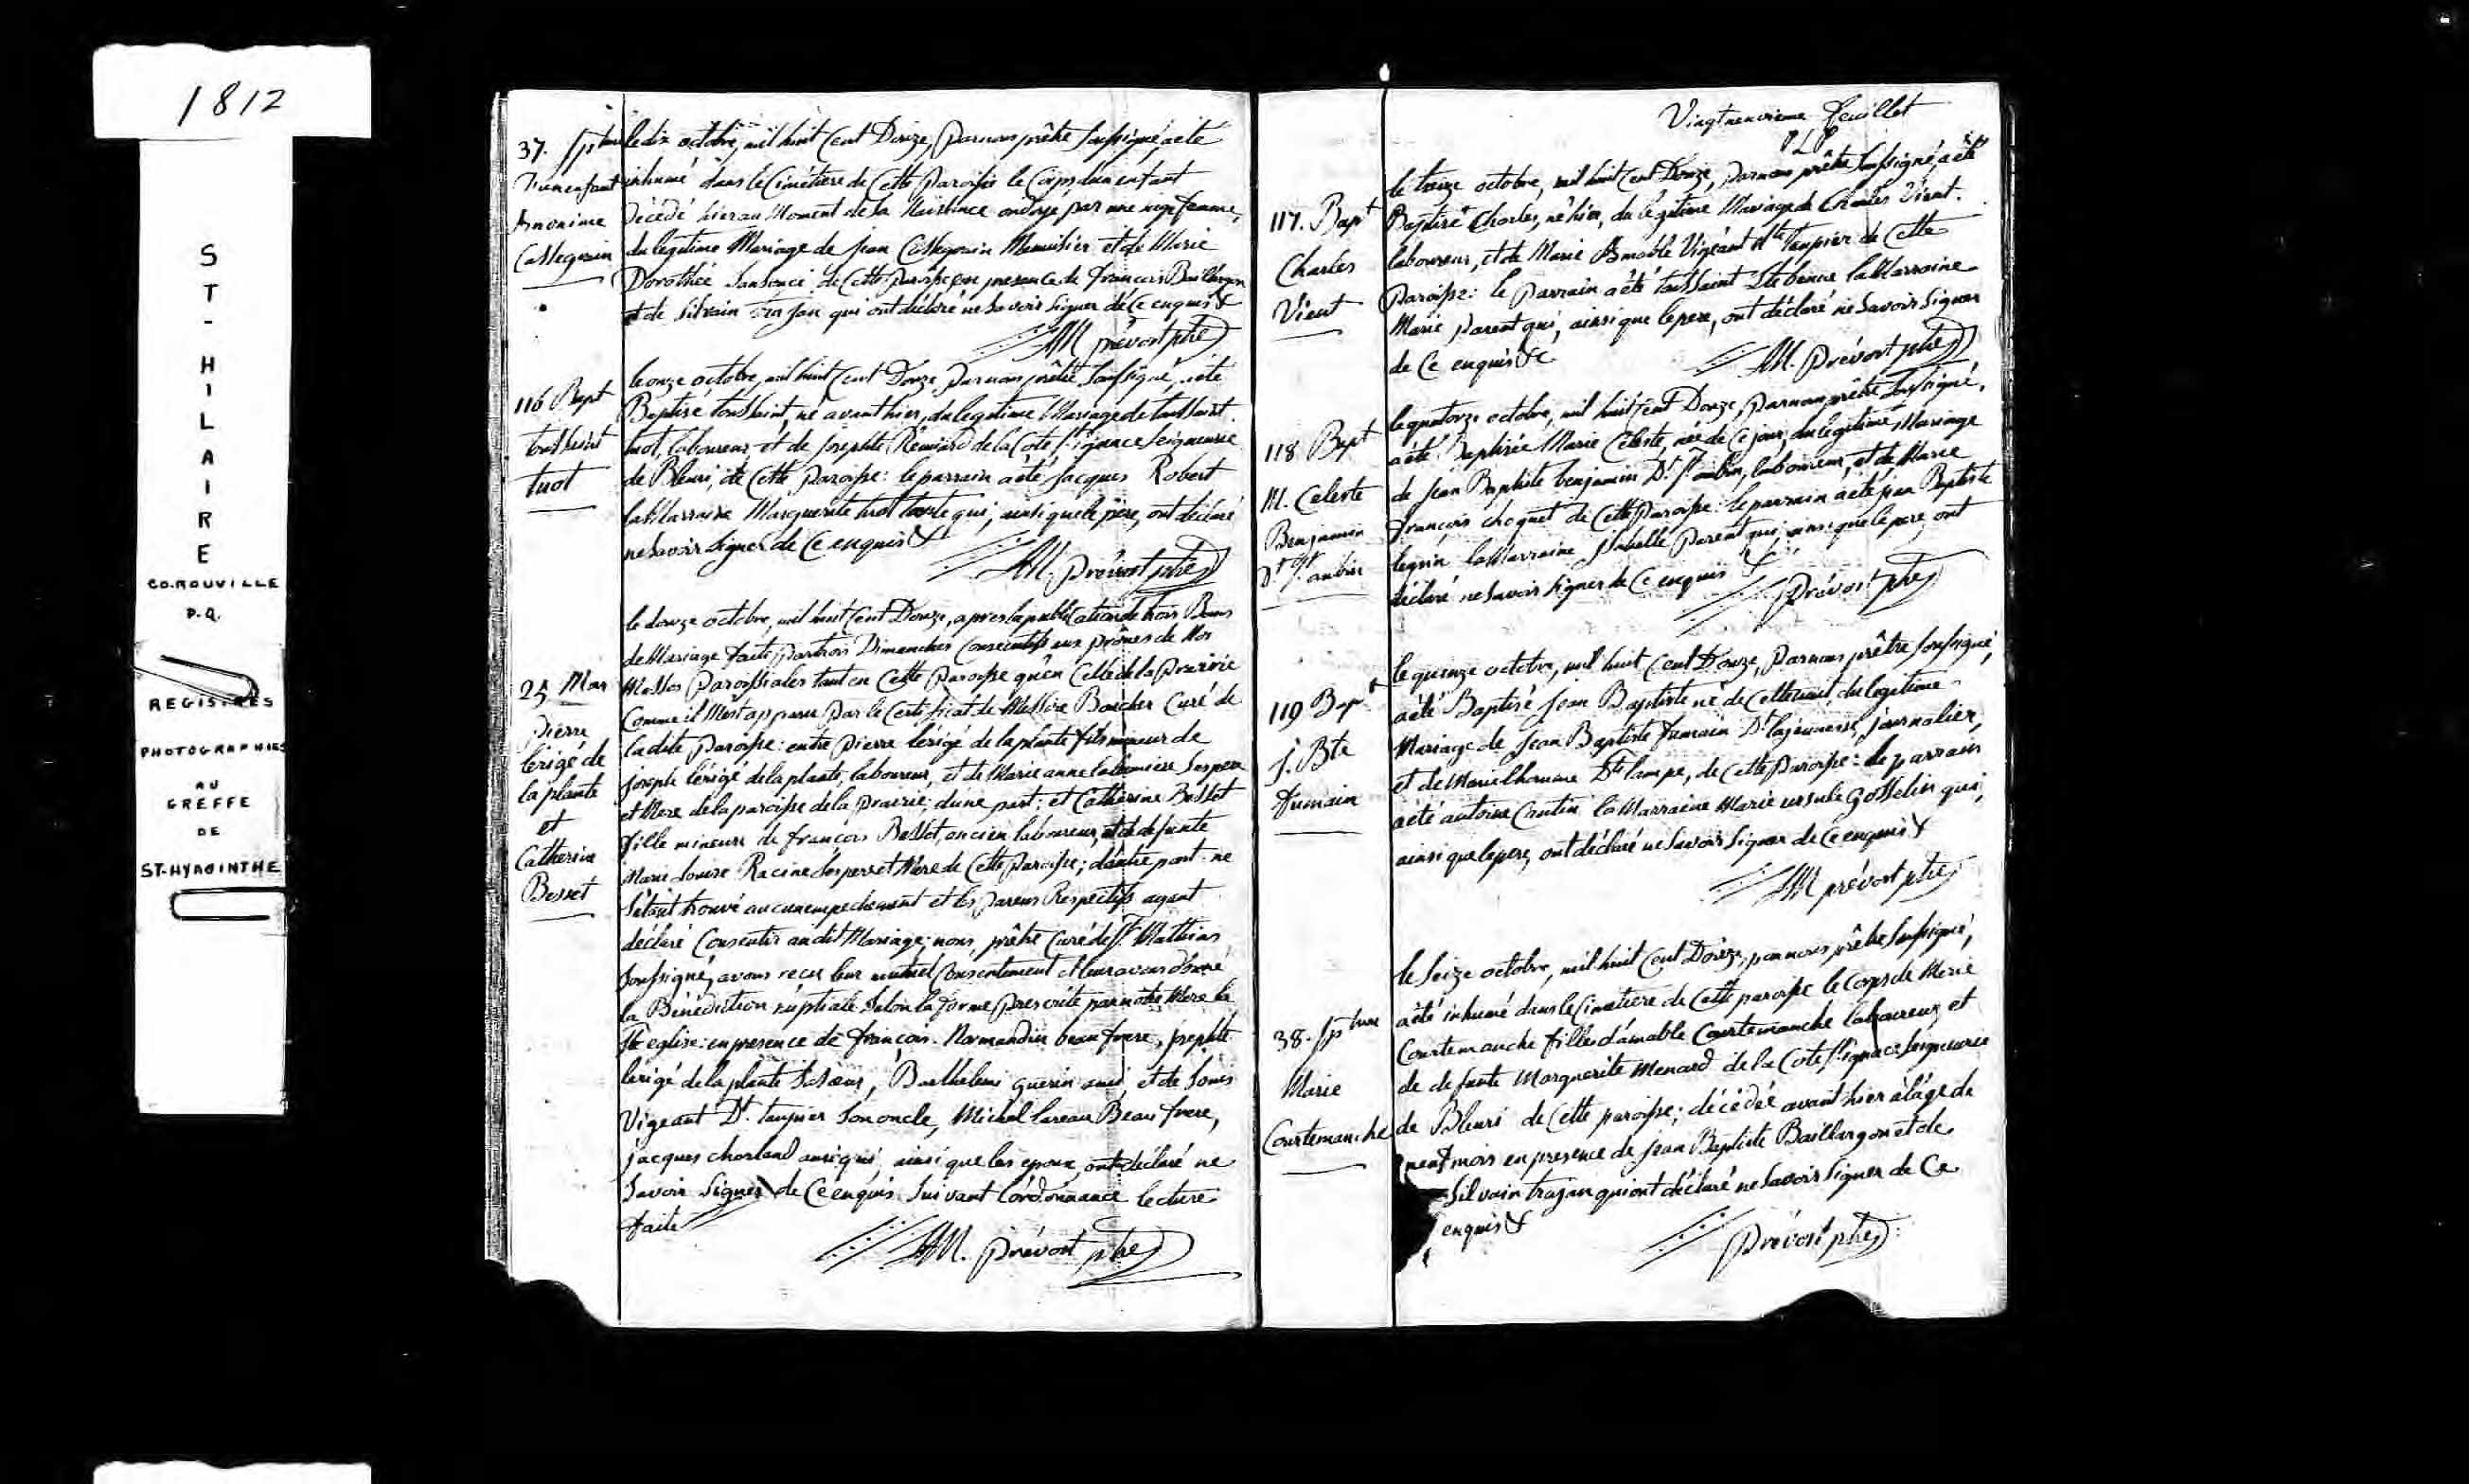 1812
ST-HILAIRE
CO. ROUVILLE
P.Q.
REGISTRES
PHOTOGRAPHIES
AU
GREFFE
DE
ST-HYACINTHE
37. Spture
D'un enfant
Anonime
Castegnin
le dix octobre, mil huit Cent Douze, par nous prêtre Soussigné, a été
inhumé dans le Cimétiere de Cette Paroisse le Corps d'un enfant
Décédé hier au Moment de sa Naissance ondoyé par une sage femme,
du legitime Mariage de jean Menuisier et de Marie
Dorothée Sansouci de Cette paroisse en presence de francois Baillargon
et de Silvain trajan qui ont déclaré ne Savoir Signer de Ce enquis &
M prévost ptre
116 Bapt
toussaint
huot
le onze octobre, mil huit Cent Douze, par nous prêtre Soussigné, a été
Baptisé toussaint, né avant hier, du legitime Mariage de toussaint
huot, laboureur et de josephte de la Cote St ignace Seigneurie
de Bleuri, de Cette Paroisse: le parrain a été Jacques Robert
la Marraine Marguerite huot tante qui, ainsi que le père, ont déclaré
ne Savoir Signer de Ce enquis &
M. prévost ptre
25 Mar
Pierre
lérigé de
la plante
et
Catherine
Besset
le douze octobre, mil huit Cent Douze, apres la publication de trois Bans
de Mariage faite par trois Dimanches Consecutifs aux prônes de Nos
Messes Paroissiales tant en Cette Paroisse qu'en Celle de la Prairie
Comme il M'est apparu Par le Certificat de Messire Boucher Curé de
ladite Paroisse: entre Pierre lérigé de la plante fils mineur de
joseph lérigé de la plante, laboureur, et de Marie anne Ses pere
et Mere de la paroisse de la Prairie; d'une part; et Catherine Besset
fille mineure de francois Besset, ancien laboureur, et de defunte
Marie louise Racine Ses pere et Mere de Cette Paroisse; d'autre part ne
S'étant trouvé aucun empechement et les Parens Respectifs ayant
déclaré Consentir audit Mariage; nous, prêtre Curé de St Mathias
Soussigné, avons reçu leur mutuel Consentement et leur avons donné
la Bénédiction nuptiale Selon la forme prescrite par notre Mere la
Ste eglise: en presence de francois Normandin beau frere, josephte
lerigé de la plante Sa Sœur, Barthelemi guerin ami, et de Louis
Vigeant Dt taupier Son oncle, Michel lareau Beau frere,
jacques charland ami qui, ainsi que les epoux, ont déclaré ne
Savoir Signer de Ce enquis Suivant l'ordonnance lecture
faite
M. prévost ptre
Vingt neuvieme feuillet
117. Bapt
Charles
Vient
le treize octobre, mil huit Cent Douze, par nous prêtre Soussigné, a été
Baptisé Charles, né hier, du légitime Mariage de Charles Vient
laboureur, et de Marie Amable Vigeant dte taupier de Cette
Paroisse: le Parrain a été toussaint la Marraine
Marie parent qui, ainsi que le pere, ont déclaré ne Savoir Signer
de Ce enquis &c
M. Prévost ptre
118. Bapt
M. Celeste
Benjamin
Dt St. aubin
le quatorze octobre, mil huit Cent Douze, par nous prêtre Soussigné,
a été Baptisée Marie Celeste, née de Ce jour, du legitime Mariage
de jean Baptiste benjamin Dt St aubin, laboureur, et de Marie
françois choquet de Cette Paroisse: le parrain a été jean Baptiste
la Marraine isabelle Parent qui, ainsi que le pere, ont
déclaré ne Savoir Signer de Ce enquis &
Prévost ptre
119 Bapt
j. Bte
fumain
le quinze octobre, mil huit Cent Douze, Par nous prêtre Soussigné,
a été Baptisé jean Baptiste né de Cette nuit, du legitime
Mariage de jean Baptiste fumain Dt lajeunesse, journalier,
et de Marie Dte lampe, de Cette Paroisse: le parrain
a été antoine Cantin la Marraine Marie ursule Gosselin qui,
ainsi que le pere, ont déclaré ne Savoir Signer de Ce enquis &
M prévost ptre
38. Spture
Marie
Courtemanche
le Seize octobre, mil huit Cent Douze, par nous prêtre Soussigné,
a été inhumé dans le Cimetiere de Cette paroisse le Corps de Marie
Courtemanche fille d'amable Courtemanche laboureur, et
de defunte Marguerite Menard de la Cote St ignace Seigneurie
de Bleuri de Cette paroisse; décédée avant hier à l'âge de
neuf mois en presence de jean Baptiste Baillargon et de
Silvain trajan qui ont déclaré ne Savoir Signer de Ce
enquis &
Prévost ptre